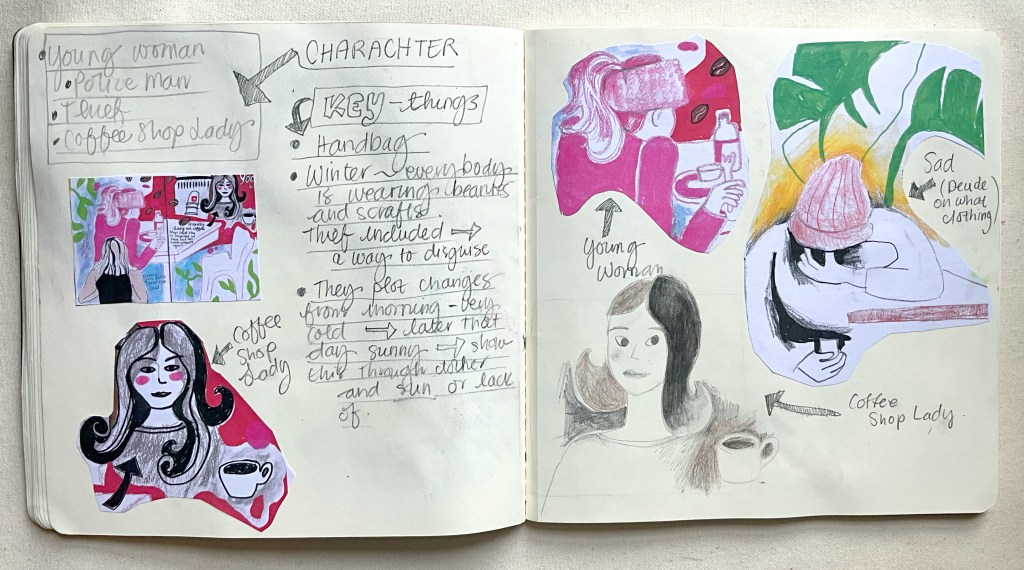 Young woman
• Police man
• Thief
• Coffee Shop Lady
CHARACHTER
KEY - things
• Handbag
• Winter - everybody
is wearing beanies
and scarfs
Thief included →
a way to disguise
• They plot changes
from morning - very
cold → later that
day sunny → show
this through clother
and sun or lack
of.
Coffee
Shop
Lady
Young
Woman
Sad
(Decide
on what
clothing)
Coffee
Shop Lady.